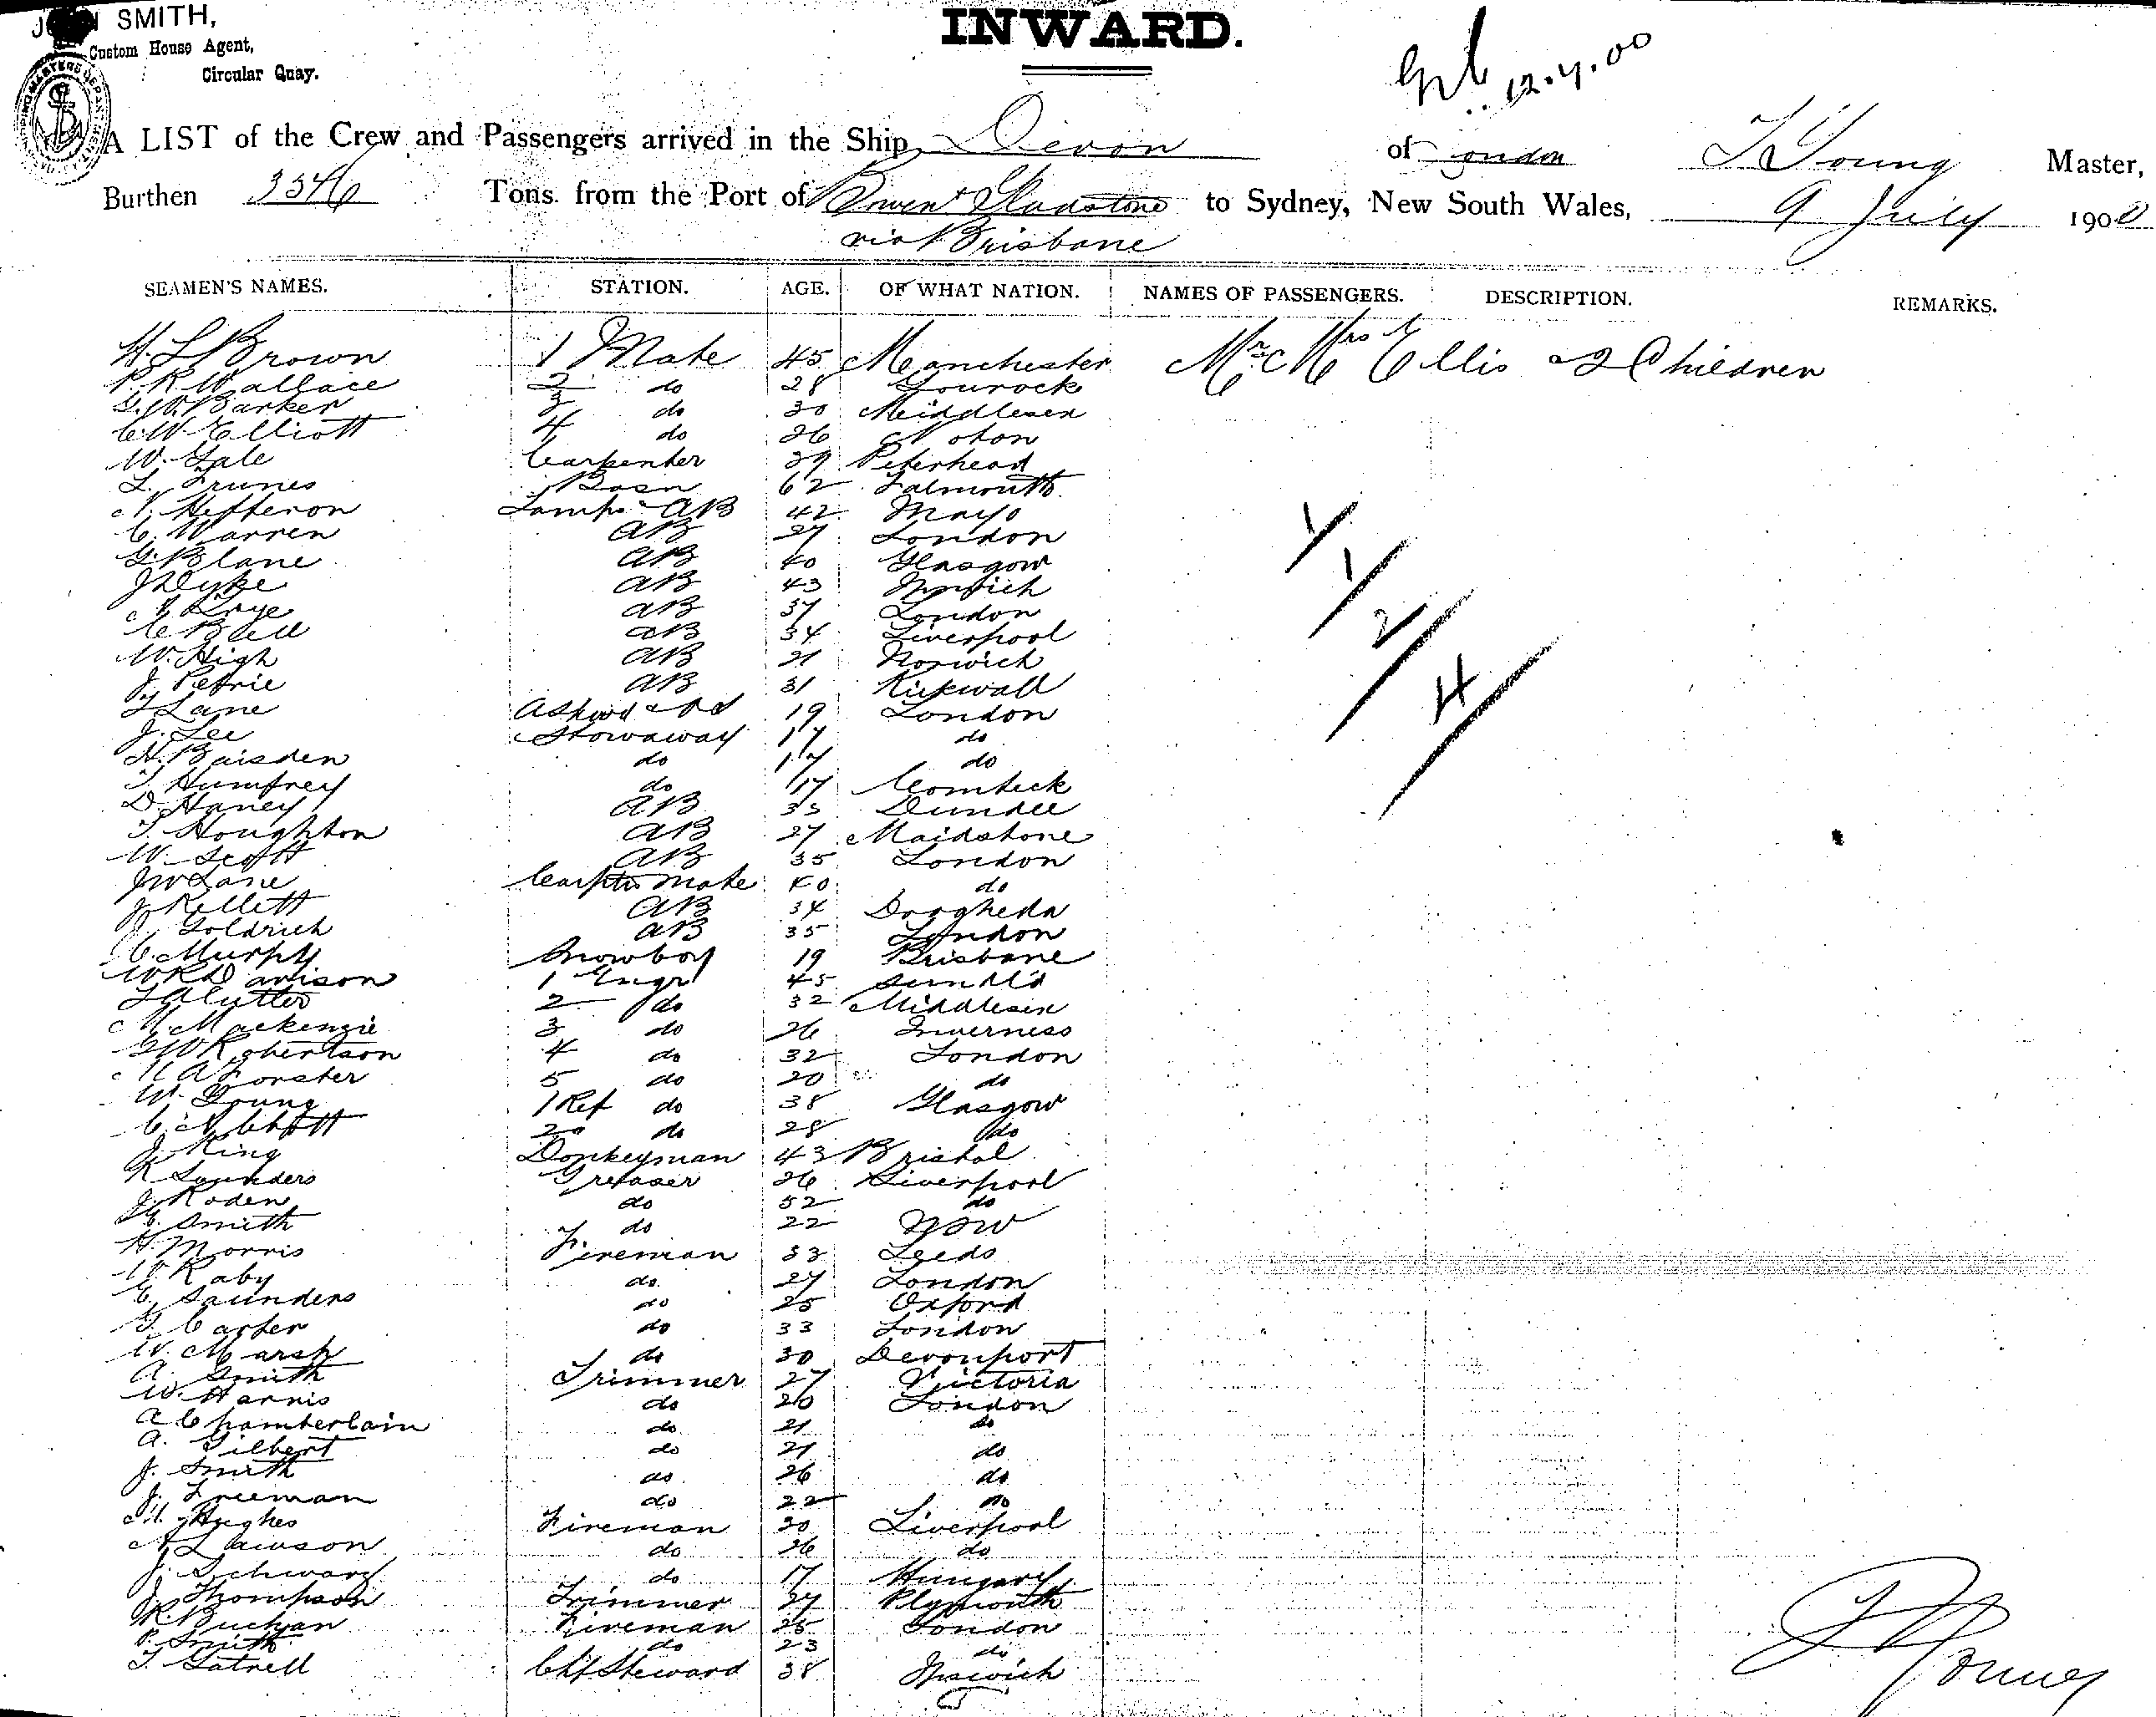 JOHN SMITH,
Custom House Agent,
Circular Quay.
INWARD.
12.7.00
A LIST of the Crew and Passengers arrived in the Ship Devon of London T Young Master,
Burthen 3346 Tons from the Port of Bowen & Gladstone to Sydney, New South Wales, 9 July 1900
via Brisbane
SEAMEN'S NAMES. STATION. AGE. OF WHAT NATION. NAMES OF PASSENGERS. DESCRIPTION. REMARKS.
H. L Brown 1 Mate 45 Manchester Mr & Mrs Ellis & 2 Children
P. R Wallace 2 do 28 Gourock
G. W. Barker 3 do 30 Middlesex
C. W. Elliott 4 do 26
W. Gale Carpenter 39 Peterhead
Bosn 62 Falmouth
N. Hefferon Lamps AB 42 Mayo
C. Warren AB 27 London
G. Blane AB 40 Glasgow
J Dyke AB 43
AB 37 London
C Bell AB 34 Liverpool
W. High AB 21 Norwich
J. Petrie AB 31 Kirkwall
T Lane 19 London
J. Lee Stowaway 17 do
H. Baisden do 17 do
T Humfrey do 17
D. Haney AB 35 Dundee
T. Houghton AB 27 Maidstone
W. Scott AB 35 London
J W Lane Carptrs Mate 40 do
J Kellett AB 34 Drogheda
J. Goldrich AB 35 London
C. Murphy Snowboy 19 Brisbane
W R Davison 1 Engr 45 Sundld
2 do 32 Middlesex
M. Mackenzie 3 do 26 Inverness
G W Robertson 4 do 32 London
H A Forster 5 do 20 do
W. Young 1 Ref do 38 Glasgow
2 do 28 do
J King Donkeyman 43 Bristol
R Saunders Greaser 26 Liverpool
J. Roden do 52 do
E. Smith do 22 NSW
H. Morris Fireman 33 Leeds
W. Raby do 27 London
E. Saunders do 25 Oxford
G. Carter do 33 London
W. Marsh do 30 Devonport
A. Smith Trimmer 27 Victoria
W. Harris do 20 London
A Chamberlain do 21 do
A. Gilbert do 21 do
J. Smith do 26 do
J. Freeman do 22 do
H. Hughes Fireman 30 Liverpool
N Lawson do 26 do
J. Schwarz do 17 Hungary
J. Thompson Trimmer 27 Plymouth
R. Buchan Fireman 25 London
P. Smith do 23 do
T. Gatrell Chf Steward 38 Ipswich
1
1
2
4
T Young